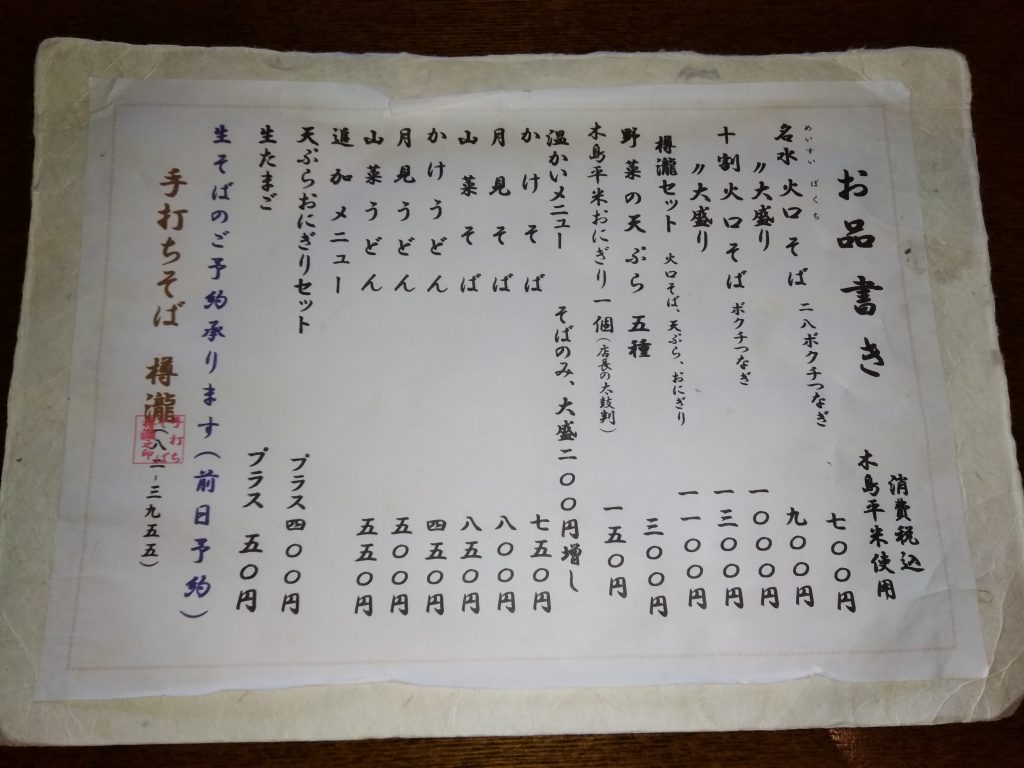 消費税込
木島平米使用
お品書き
めいすい ぼくち
名水 火口 そば 二八ボクチつなぎ 七〇〇円
〃大盛り 九〇〇円
十割火口そば ボクチつなぎ 一〇〇〇円
〃大盛り 一三〇〇円
樽瀧セット 火口そば、天ぷら、おにぎり 一一〇〇円
野菜の天ぷら 五種 三〇〇円
木島平米おにぎり一個(店長の太鼓判) 一五〇円
温かいメニュー そばのみ、大盛二〇〇円増し
かけそば 七五〇円
月見そば 八〇〇円
山菜そば 八五〇円
かけうどん 四五〇円
月見うどん 五〇〇円
山菜うどん 五五〇円
追加メニュー
天ぷらおにぎりセット プラス四〇〇円
生たまご プラス 五〇円
生そばのご予約承ります(前日予約)
手打ちそば 樽瀧
(八二-三九五五)
手打ち